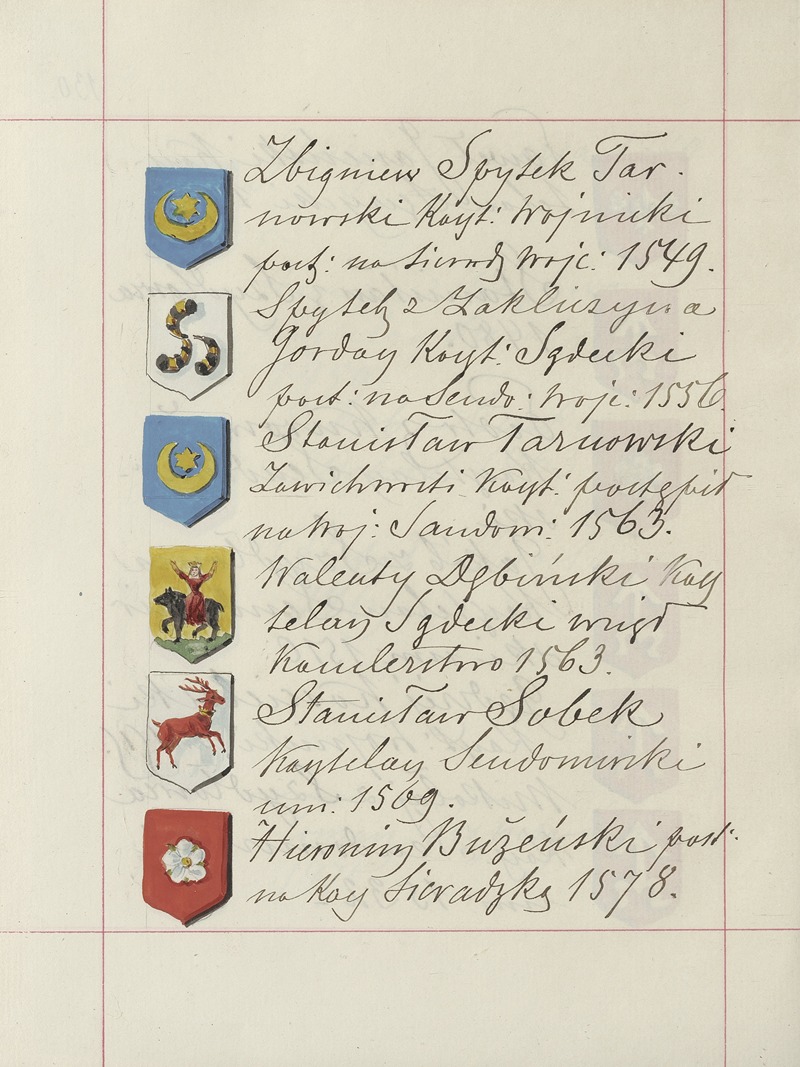 Zbigniew Spytek Tar-
nowski Kaszt: Wojnicki
post: na Sieradz Wojc: 1549.
Spytek z Zakliczyna
Jordan Kaszt: Sądecki
post: na Sendo: Woje: 1556.
Stanisław Tarnowski
Zawichosti Kaszt: postąpił
na Woj: Sandom: 1563.
Walenty Dębiński Kasz
telan Sądecki wziął
Kanclerstwo 1563.
Stanisław Sobek
Kasztelan Sendomirski
um: 1569.
Hieronim Bużeński post:
na Kasz Sieradzką 1578.